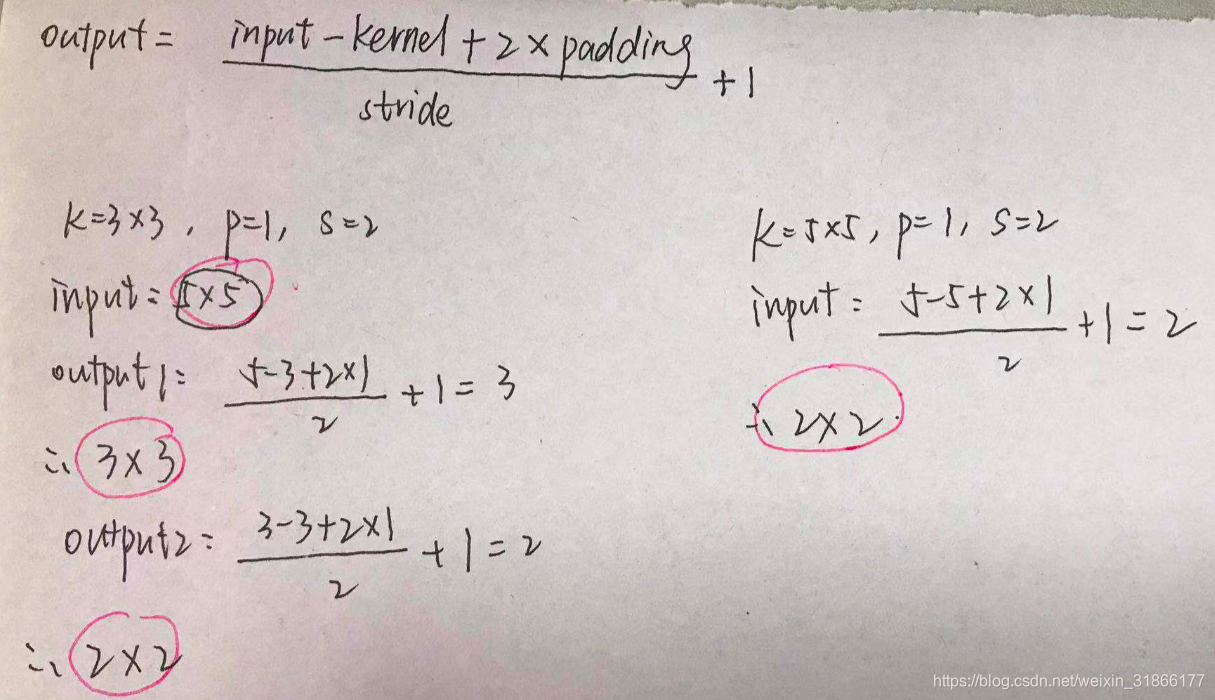 output = (input - kernel + 2 × padding) / stride + 1
k=3×3, p=1, s=2
input = 5×5
output1 = (5-3+2×1) / 2 + 1 = 3
∴ 3×3
output2 = (3-3+2×1) / 2 + 1 = 2
∴ 2×2
k=5×5, p=1, s=2
input = (5-5+2×1) / 2 + 1 = 2
∴ 2×2
https://blog.csdn.net/weixin_31866177